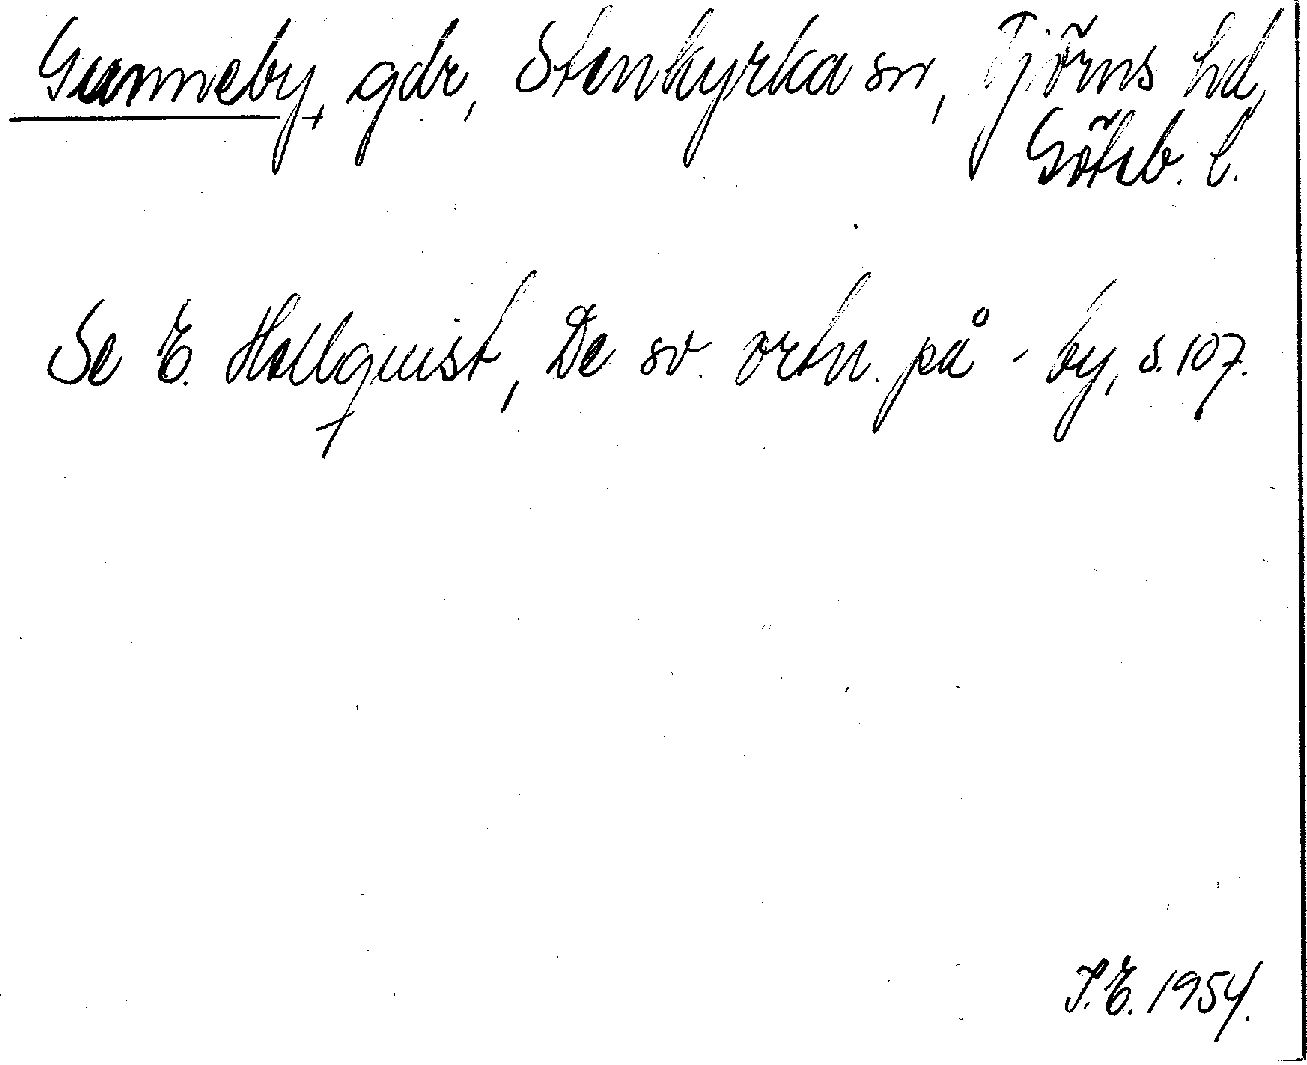 Gunneby, gdr, Stenkyrka sn, Tjörns hd,
Göteb. l.
Se E. Hellquist, De sv. ortn. på -by, s. 107.
I. E. 1954.